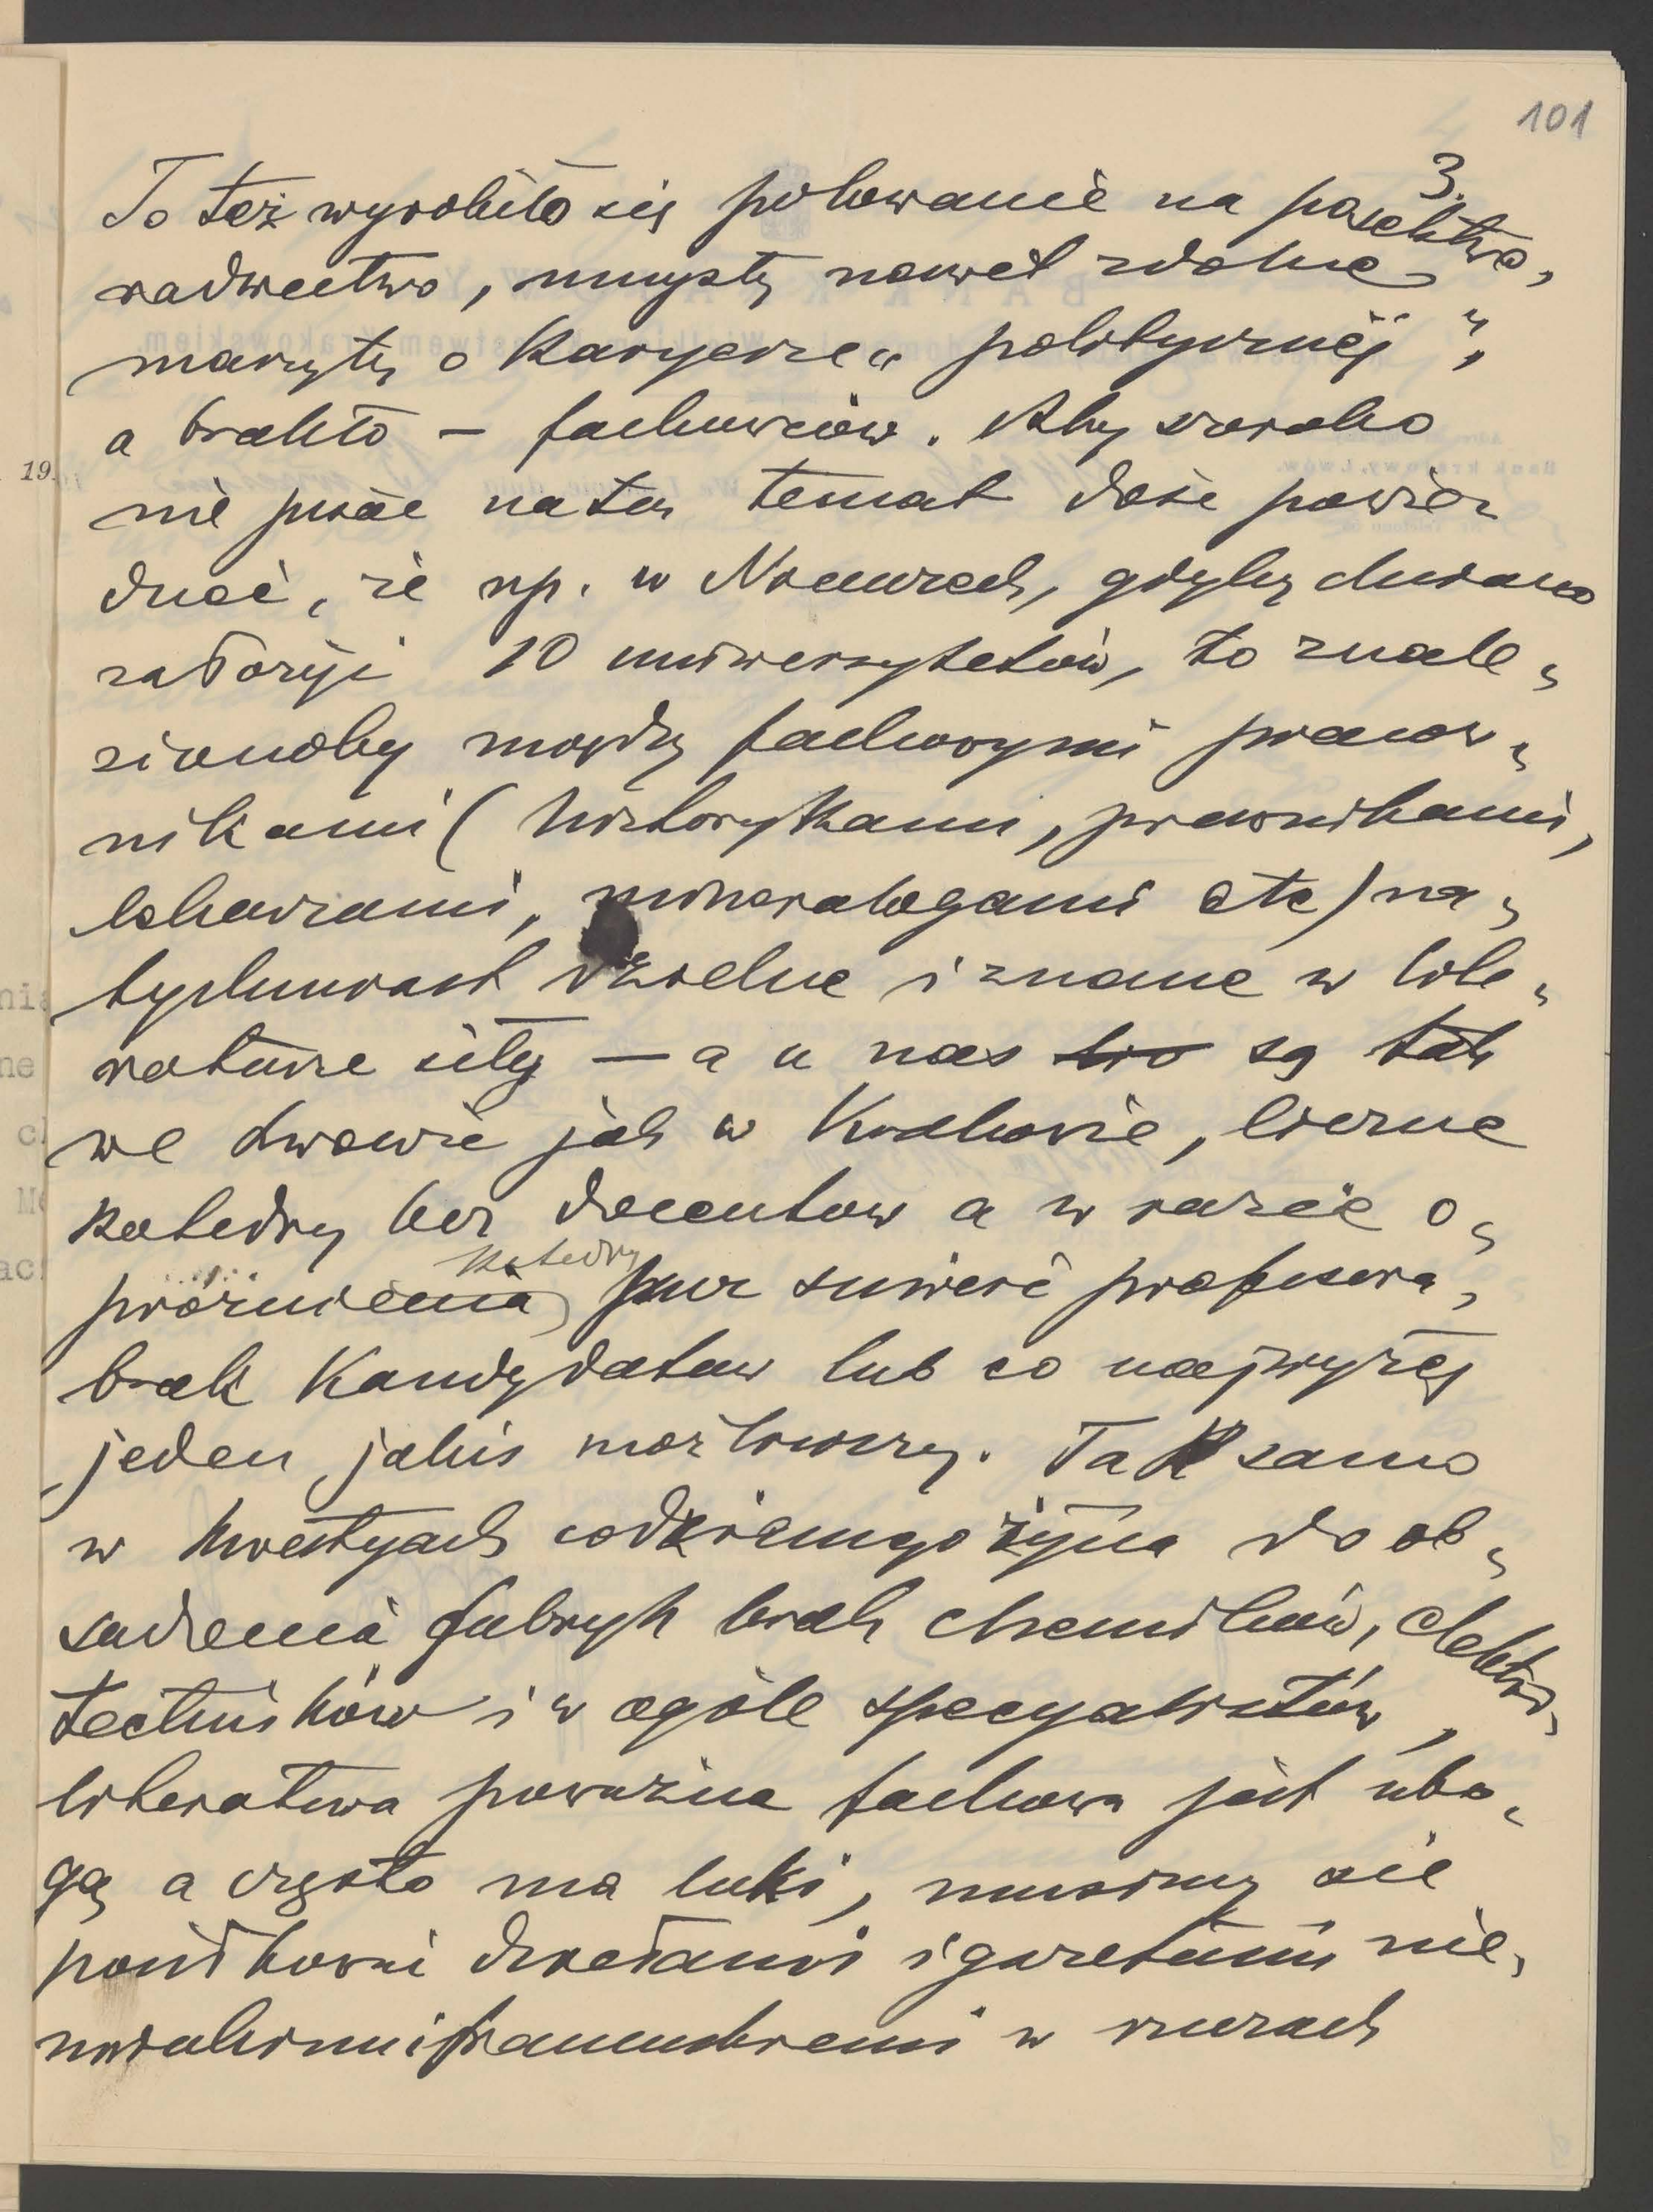 101
3.
To też wyrobiło się polowanie na poselstwo,
radziectwo, umysły nawet zdolne
marzyły o karyerze „politycznej",
a brakło — fachowców. Aby szeroko
nie pisać na ten temat dość powie-
dzieć, że np. w Niemczech, gdyby chciano
założyć 10 uniwersytetów, to znale-
zionoby między fachowymi pracow-
nikami (historykami, prawnikami,
lekarzami, mineralogami etc) na-
tychmiast dzielne i znane w lite-
raturze siły — a u nas są tak
we Lwowie jak w Krakowie, liczne
katedry bez docentow a w razie o-
próżnienia katedry przez śmierć profesora,
brak kandydatow lub co najwyżej
jeden jakiś możliwszy. Tak samo
w kwestyach codziennego życia do ob-
sadzenia fabryk brak chemików, elektro-
techników i w ogóle specyalistów,
literatura poważna fachowa jest ubo-
gą a często ma luki, musimy się
posiłkować dziełami i gazetami nie-
mieckimi i francuskiemi w rzeczach